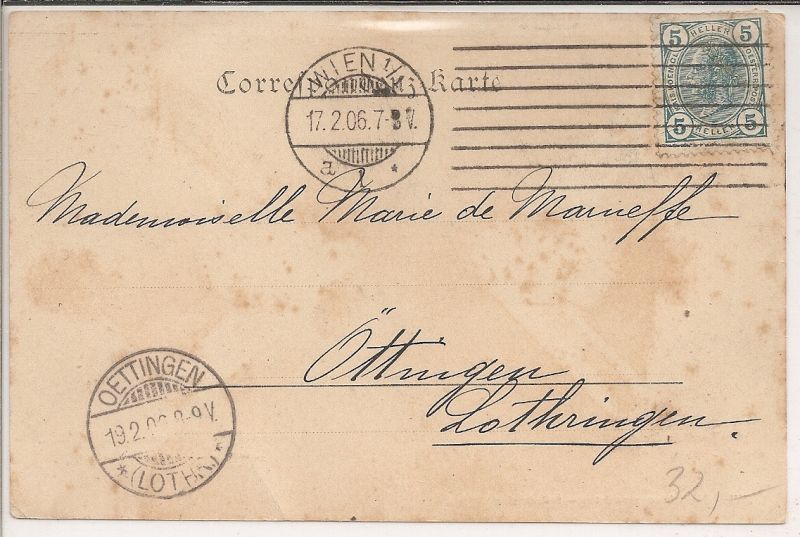 Correspondenz-Karte
WIEN 1/1
17.2.06.7-8V.
a 1 *
5 HELLER 5
5 HELLER 5
Mademoiselle Marie de Marneffe
Öttingen
Lothringen.
OETTINGEN
19.2.06.8-9V.
* (LOTHR.) *
32,-